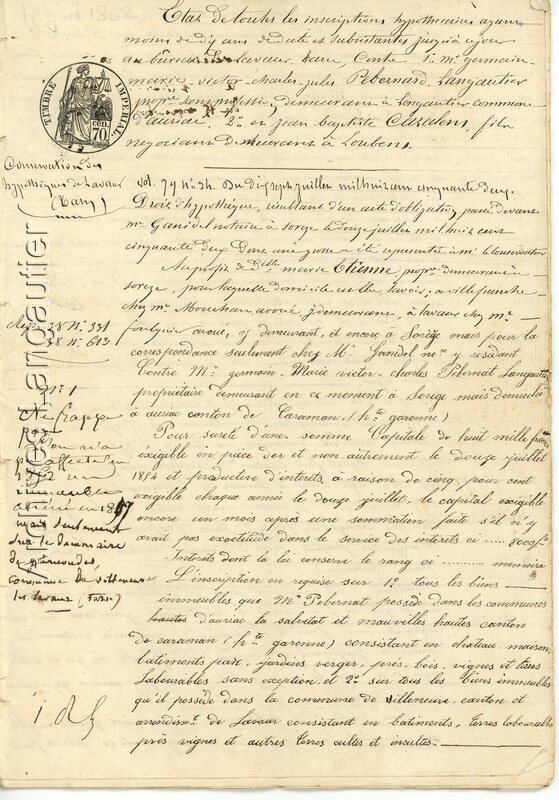 Etat de toutes les inscriptions hypothécaires ayant
moins de dix ans de date et subsistantes jusqu'à ce jour
au bureau de Lavaur, Tarn, Contre 1º Mr germain
marie victor-charles-jules Pebernard Langautier
propre sans profession, demeurant à Longautier commune
d'auriac, 2º et jean baptiste Cazalens, fils
negociant demeurant à Loubens.
TIMBRE IMPERIAL
70
CEN.
Conservation des
hypothèques de Lavaur
(Tarn)
vol. 79 nº 34. Du dix sept juillet mil huit cent cinquante deux.
Droit d'hypothèque, résultant d'un acte d'obligation passé devant
Me Ganidel notaire à sorèze le douze juillet mil huit cent
cinquante deux Dont une grosse a été représentée à M. le Conservateur
Au profit de Delle marie Etienne propre demeurant à
sorèze, pour laquelle domicile est élu, savoir: à ville franche
chez Me Mouchan avoué y demeurant, à lavaur chez Me
avoué, y demeurant, et encore à Sorèze mais pour la
correspondance seulement chez Me Ganidel nore y résidant
Contre Mr germain-Marie victor-charles Pebernat Langautier
propriétaire demeurant en ce moment à Sorèze mais domicilié
à auriac canton de Caraman (hte garonne).
Pour sureté d'une somme Capitale de huit mille francs
exigible en pièce d'or et non autrement le douze juillet
1854 et productive d'interets à raison de cinq pour cent
exigible chaque année le douze juillet, le capital exigible
encore un mois après une sommation faite s'il n'y
avait pas exactitude dans le service des interets ci ..... 8000f
Interets dont la loi conserve le rang ci .......... memoire
L'inscription est requise sur 1º tous les biens
immeubles que Mr Pebernat possède dans les communes
hautes d'auriac la salvetat et mauvilles hautes canton
de caraman (hte garonne) consistant en chateau, maison,
batiments, parc, jardins verger, près, bois, vignes et terres
Labourables sans exception, et 2º sur tous les biens immeubles
qu'il possède dans la commune de villeneuve, canton et
arrondist de Lavaur consistant en batiments, terres labourables
près vignes et autres terres cultes et incultes.
38 nº 331
38 nº 613
nº 1
Ne frappe
pas
immeuble
en 1857
mais seulement
sur le domaine
commune de villeneuve
les lavaur (Tarn)
Langautier